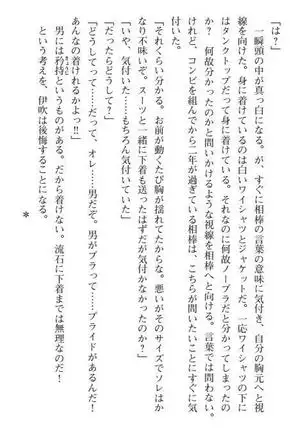 「は？」
　一瞬頭の中が真っ白になる。が、すぐに相棒の言葉の意味に気付き、自分の胸元へと視
線を向けた。身に着けているのは白いワイシャツとジャケットだ。一応ワイシャツの下に
はタンクトップだって身に着けている。それなのに何故ノーブラだと分かってしまったの
か？　何故分かったのかと問いかけるような視線を相棒へと向ける。言葉では問わない。
けれど、コンビを組んでから二年が過ぎている相棒は、こちらが問いたいことにすぐに気
付いた。
「それくらい分かる。お前が動くたび胸が揺れてたからな。悪いがそのサイズでソレはか
なり不味いぞ。スーツと一緒に下着も送ったはずだが気付かなかったのか？」
「いや、気付いていた……もちろん気付いていた」
「だったらどうして？」
「どうしてって……だって、オレ……男だぞ。男がブラって……プライドがあるんだ！
あんなの着けれるかよ!!」
　男には矜持というものがある。だから着けない。流石に下着までは無理なのだ！
　という考えを、伊吹は後悔することになる。
＊